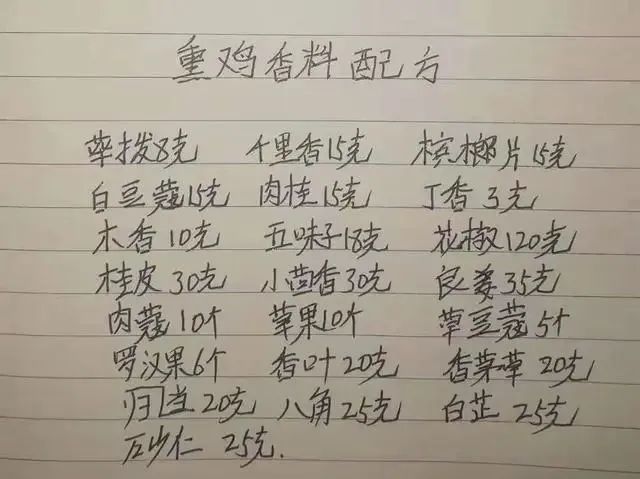 熏鸡香料配方
荜拨8克 千里香15克 槟榔片15克
白豆蔻15克 肉桂15克 丁香3克
木香10克 五味子18克 花椒120克
桂皮30克 小茴香30克 良姜35克
肉蔻10个 草果10个 草豆蔻5个
罗汉果6个 香叶20克 香茅草20克
归当20克 八角25克 白芷25克
砂仁25克.